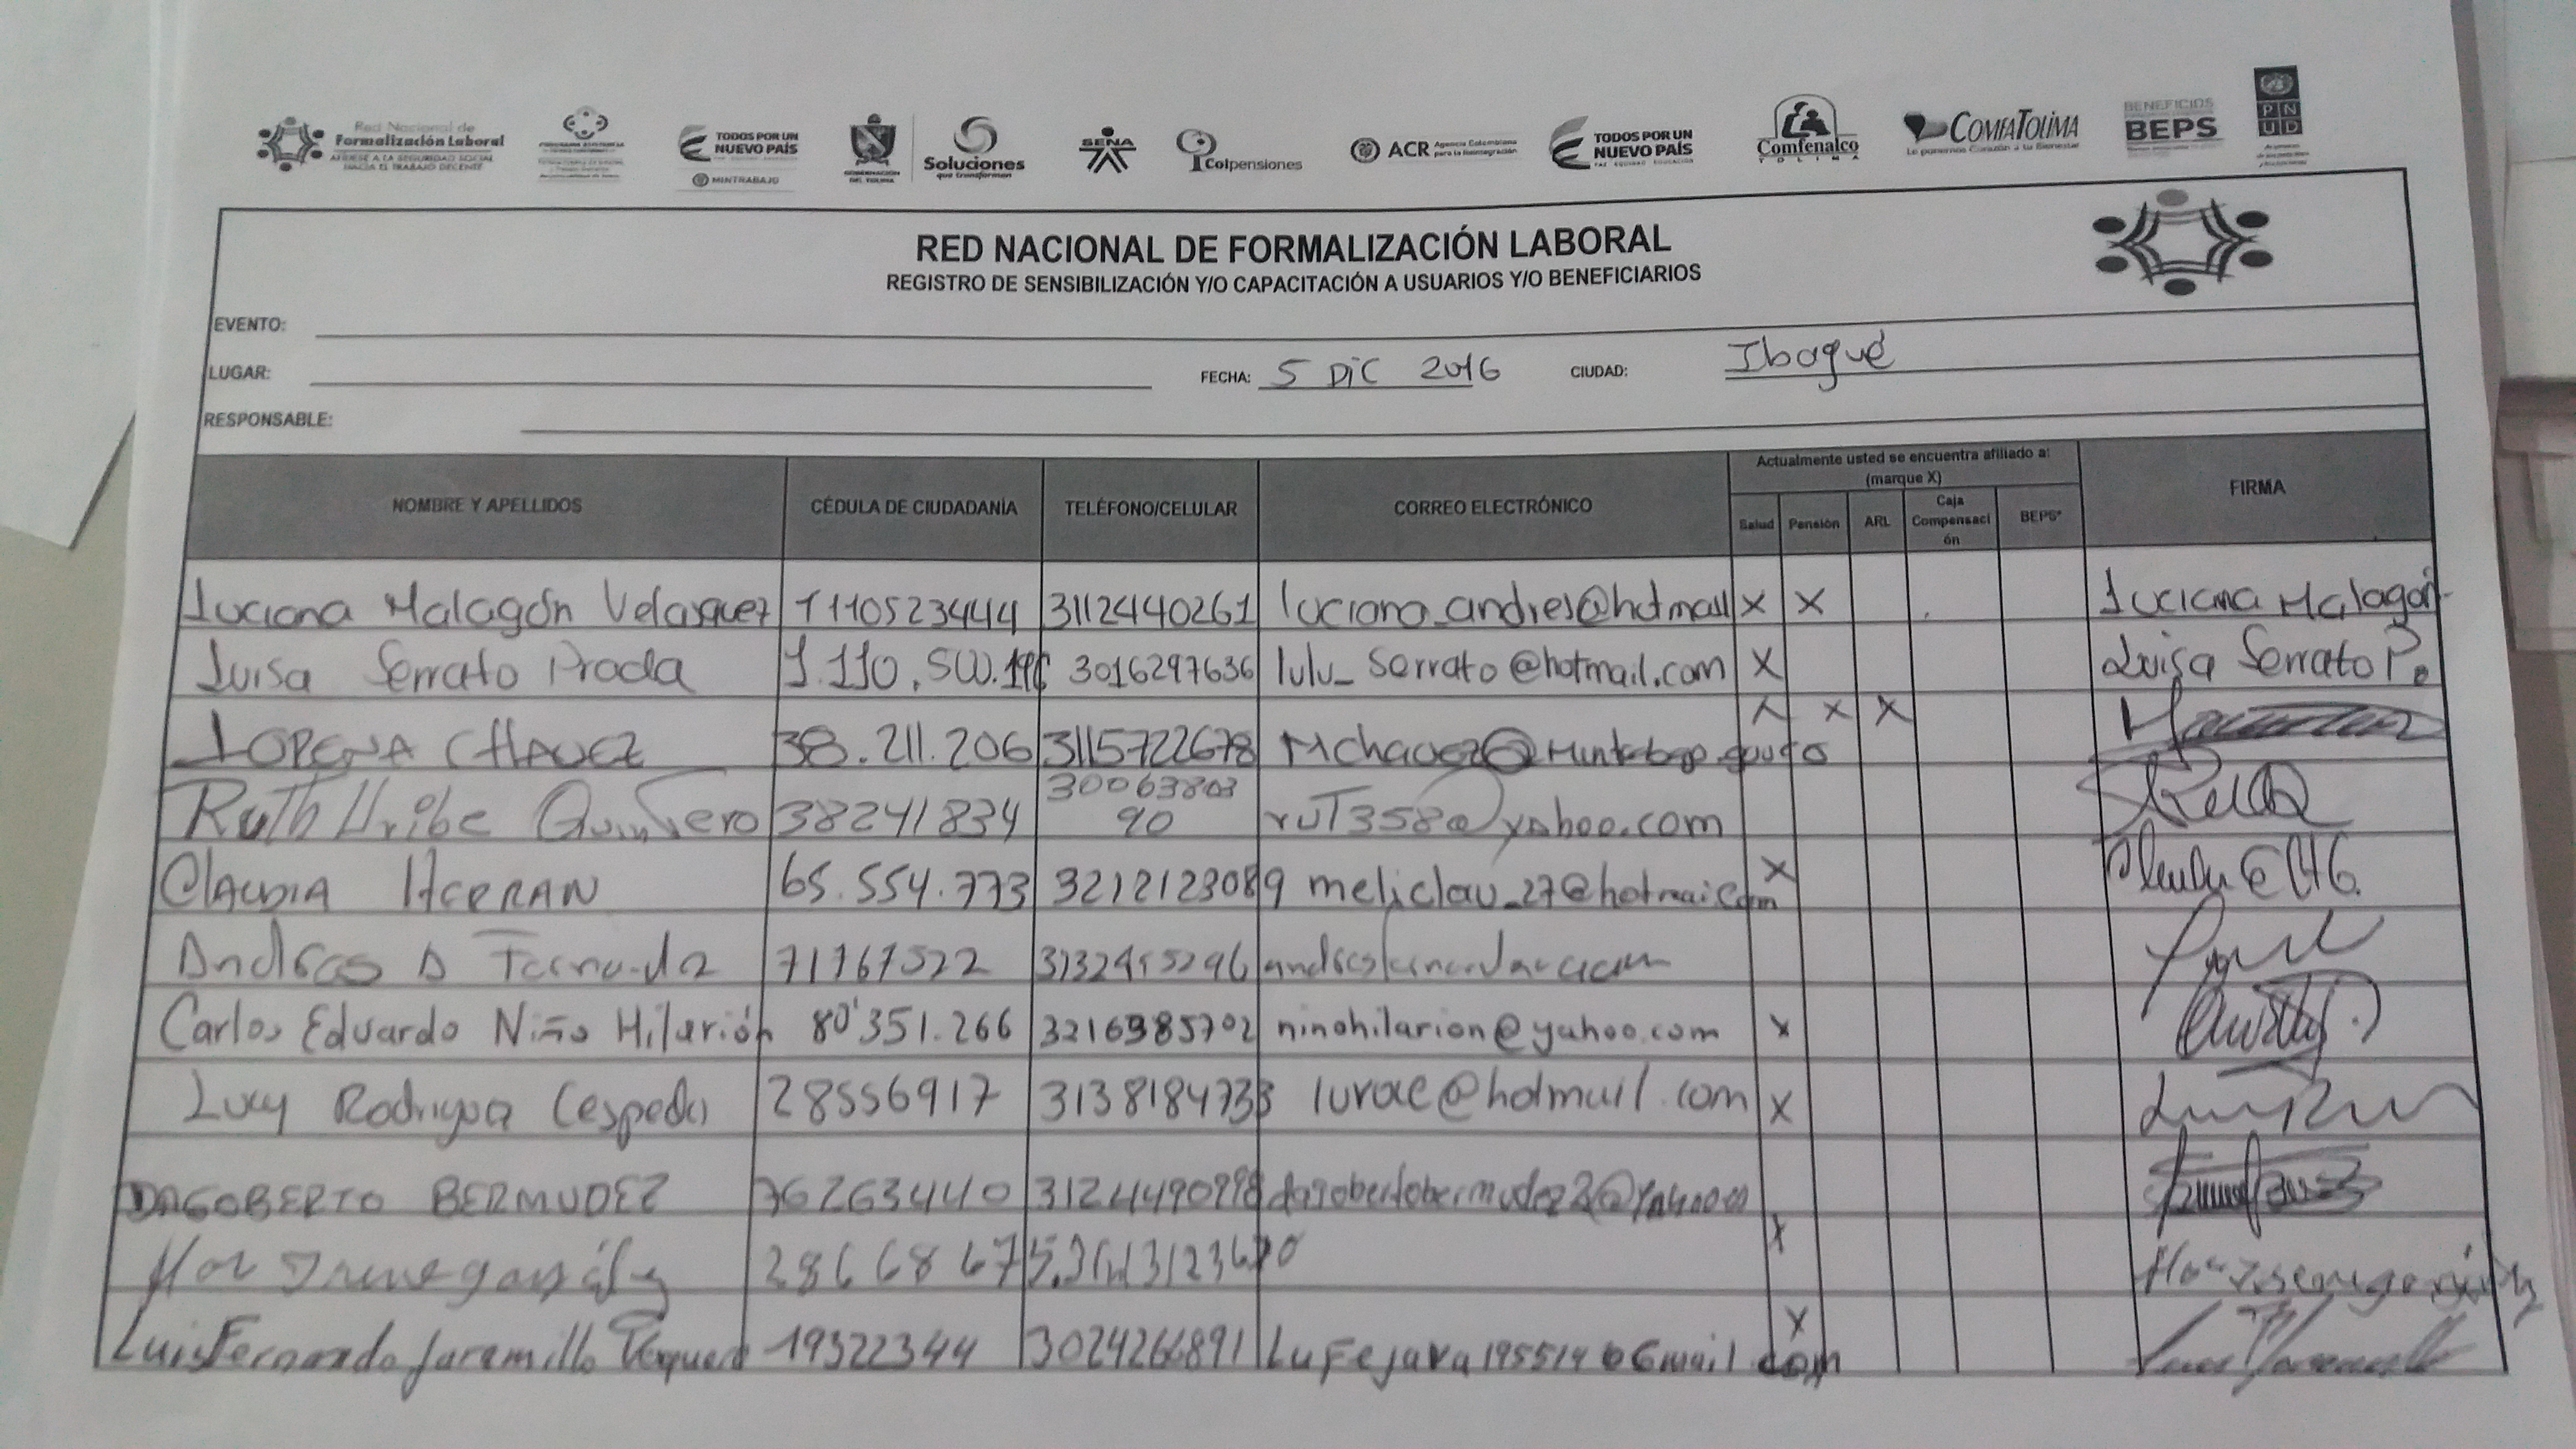 Red Nacional de
Formalización Laboral
AFÍLIESE A LA SEGURIDAD SOCIAL
HACIA EL TRABAJO DECENTE
TODOS POR UN
NUEVO PAÍS
MINTRABAJO
GOBERNACIÓN
DEL TOLIMA
Soluciones
que transforman
SENA
Colpensiones
ACR Agencia Colombiana
para la Reintegración
TODOS POR UN
NUEVO PAÍS
PAZ EQUIDAD EDUCACIÓN
Comfenalco
TOLIMA
COMFATOLIMA
Le ponemos Corazón a tu Bienestar
BENEFICIOS
BEPS
PN
UD
RED NACIONAL DE FORMALIZACIÓN LABORAL
REGISTRO DE SENSIBILIZACIÓN Y/O CAPACITACIÓN A USUARIOS Y/O BENEFICIARIOS
EVENTO:
LUGAR: FECHA: 5 DIC 2016 CIUDAD: Ibagué
RESPONSABLE:
NOMBRE Y APELLIDOS CÉDULA DE CIUDADANÍA TELÉFONO/CELULAR CORREO ELECTRÓNICO Actualmente usted se encuentra afiliado a: (marque X) FIRMA
Salud Pensión ARL Caja Compensación BEPS*
Luciana Malagón Velasquez 1110523444 3112440261 luciana_andres@hotmail X X Luciana Malagón
Luisa Serrato Prada 1.110.500.196 3016297636 lulu_serrato@hotmail.com X Luisa Serrato P.
LORENA CHAVEZ 38.211.206 3115722678 X X X
Ruth Uribe Quintero 38241834 3006380390 ruT358@yahoo.com
CLAUDIA HERRAN 65.554.773 3212123089 meliclau_27@hotmail.com X
71767522
Carlos Eduardo Niño Hilarión 80'351.266 3216985702 ninohilarion@yahoo.com X
Lucy Rodrigua Cespedes 28556917 3138184733 lurace@hotmail.com X
DAGOBERTO BERMUDEZ 76263440 3124490998
X
Luis Fernando Jaramillo 19322344 3024266891 Lufejava195514@Gmail.com X